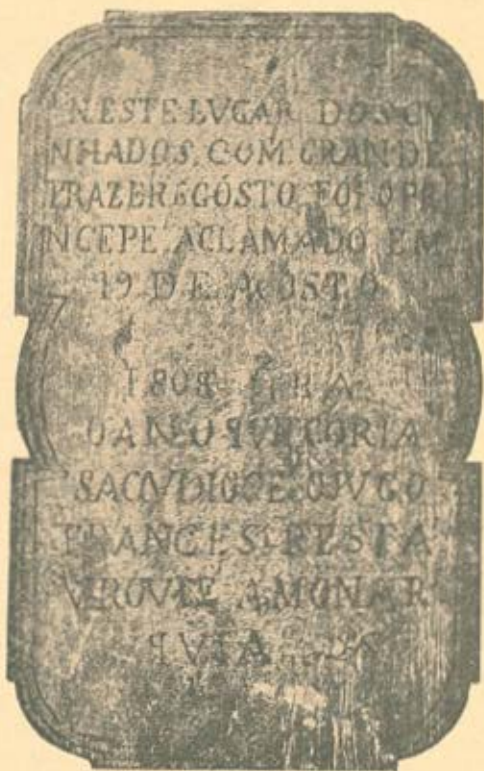 NESTE LVGAR DOS CV
NHADOS, COM GRANDE
PRAZER & GÓSTO, FOI O PR
INCEPE ACLAMADO EM
19 DE AGOSTO
1808 ERA
O ANO QVE CORIA
SACVDIOCE O JVGO
FRANCES & RESTA
VROVCE A MONAR
QVIA